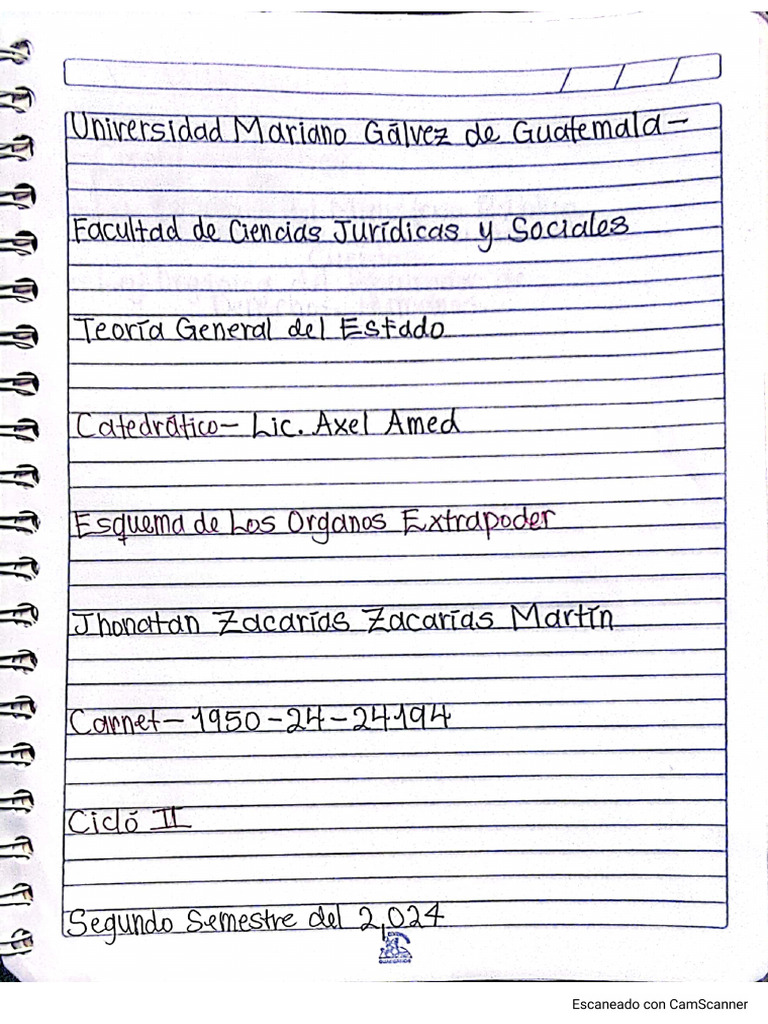 Universidad Mariano Gálvez de Guatemala-
Facultad de Ciencias Jurídicas y Sociales
Teoría General del Estado
Catedrático- Lic. Axel Amed
Esquema de Los Organos Extrapoder
Jhonattan Zacarías Zacarías Martín
Carnet- 1950-24-24194
Cicló II
Segundo Semestre del 2,024
Escaneado con CamScanner